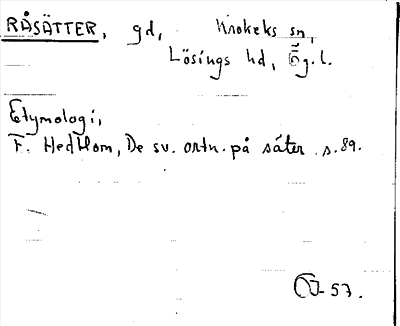 RÅSÄTTER, gd, Krokeks sn,
Lösings hd, Ög. l.
Etymologi,
F. Hedblom, De sv. ortn. på säter s. 89.
-57.